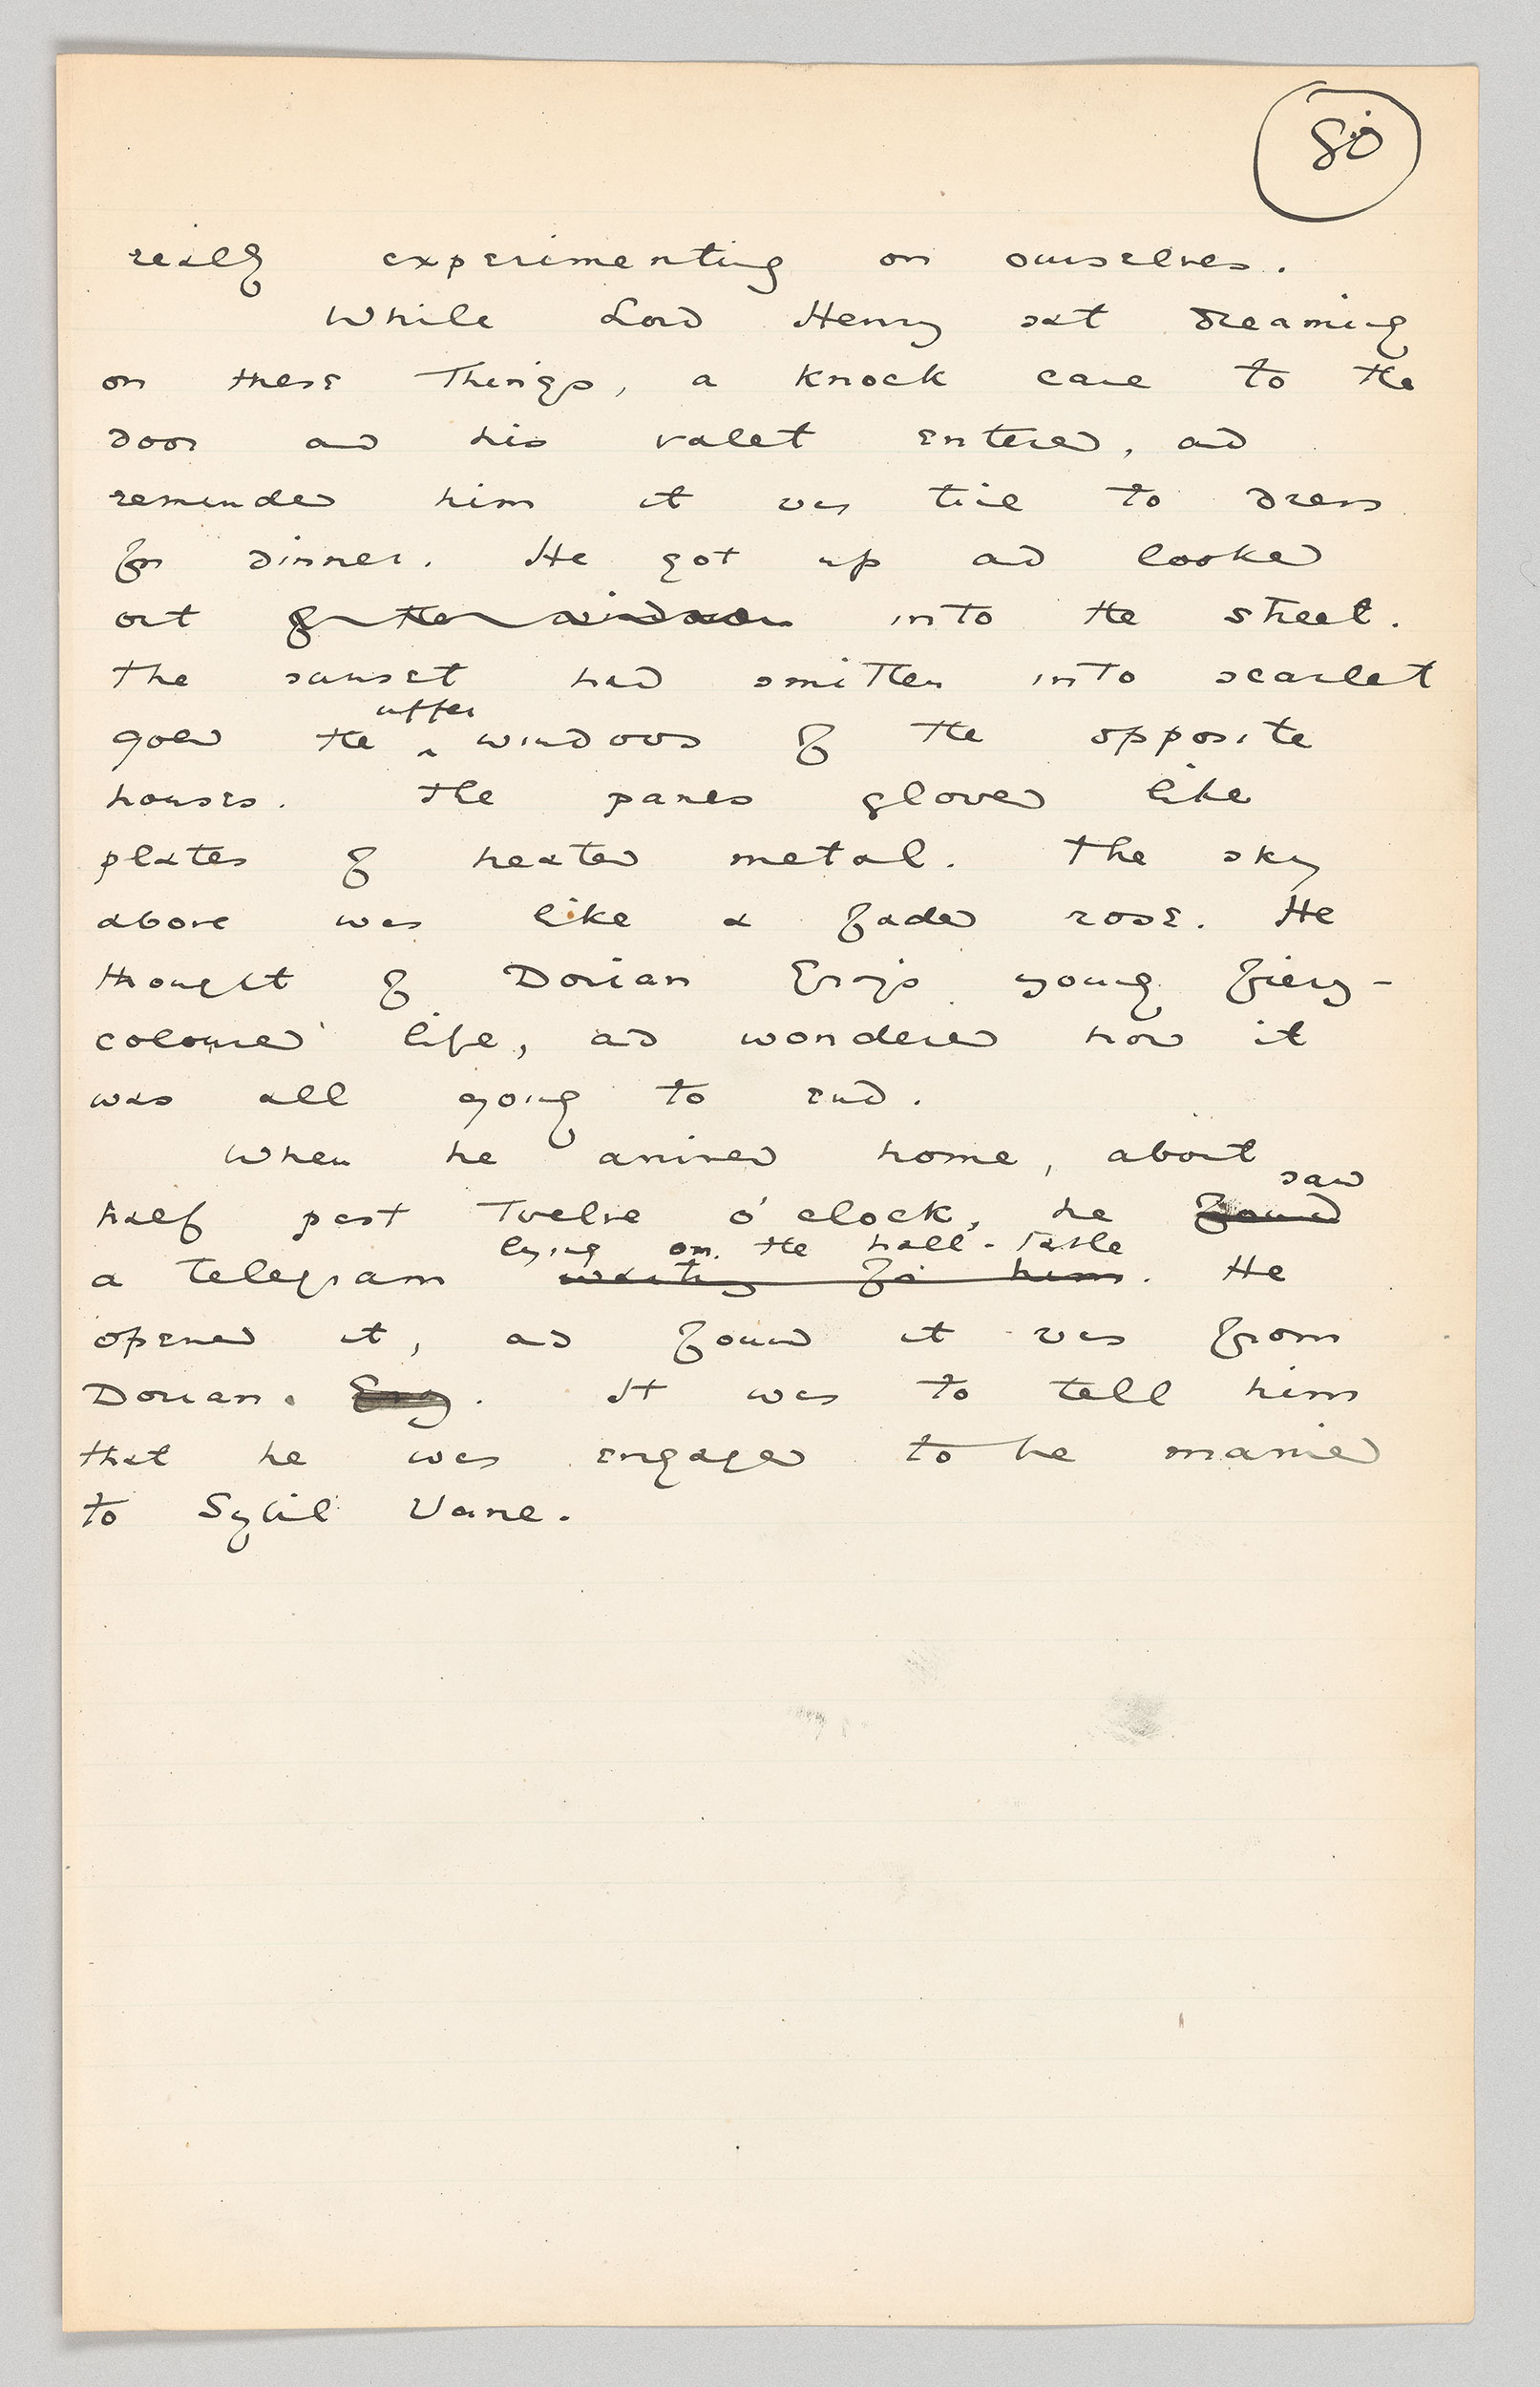 80
really experimenting on ourselves.
While Lord Henry sat dreaming
on these things, a knock came to the
door and his valet entered, and
reminded him it was time to dress
for dinner. He got up and looked
out of the window into the street.
The sunset had smitten into scarlet
upper
gold the ‸ windows of the opposite
houses. The panes glowed like
plates of heated metal. The sky
above was like a faded rose. He
thought of Dorian Gray's young fiery-
coloured life, and wondered how it
was all going to end.
When he arrived home, about
saw
half past twelve o'clock, he found
lying on the hall-table
a telegram waiting for him. He
opened it, and found it was from
Dorian. Gray. It was to tell him
that he was engaged to be married
to Sybil Vane.